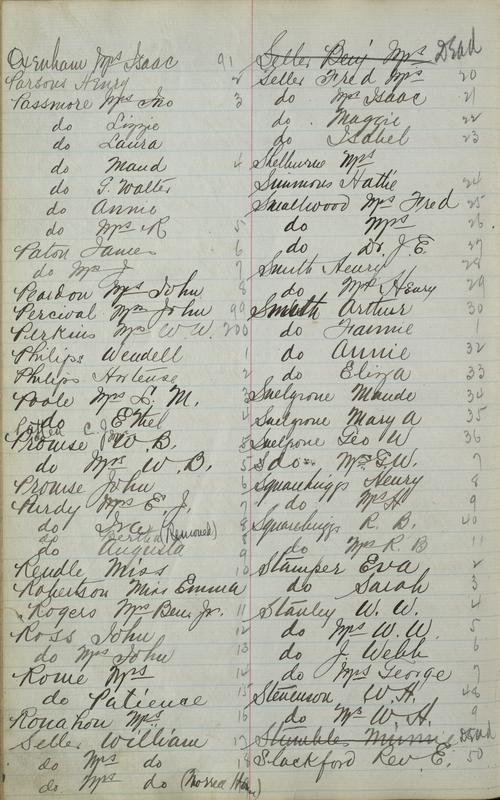 Oxenham Mrs Isaac 91
Parsons Henry 2
Passmore Mrs Jno 3
do Lizzie
do Laura
do Maud 4
do G. Walter
do Annie
do Mrs R 5
Paton James 6
do Mrs J. 7
Peardon Mrs John 8
Percival Mrs John 99
Perkins Mrs W. W. 200
Philips Wendell 1
Philips Hortense 2
Poole Mrs L. M. 3
do Ethel 4
Promise W. B. 5
do Mrs W. B. 5
Promise John 6
Purdy Mrs E. J. 7
do Iva 8
do Bertha (Removed) 8
do Augusta 9
Rendle Miss 10
Robertson Miss Emma
Rogers Mrs Ben. Jr. 11
Ross John 12
do Mrs John 13
Rowe Mrs 14
do Patience 15
Ronahon Mrs 16
Seller William 17
do Mrs do 18
do Mrs do
Seller Benj Mrs Dead
Seller Fred Mrs 20
do Mrs Isaac 21
do Maggie 22
do Isabel 23
Shelburne Mrs
Simmons Hattie 24
Smallwood Mrs Fred 25
do Mrs 26
do Dr J. E. 27
Smith Henry 28
do Mrs Henry 29
Smith Arthur 30
do Fannie 1
do Annie 32
do Eliza 33
Snelgrove Maude 34
Snelgrove Mary A 35
Snelgrove Geo W 36
do Mrs G. W. 7
Squarebriggs Henry 8
do Mrs H 9
Squarebriggs R. B. 40
do Mrs R. B 11
Stamper Eva 2
do Sarah 3
Stanley W. W. 4
do Mrs W. W. 5
do J. Webb 6
do Mrs George 7
Stevenson W. H. 48
do Mrs W. H. 9
Stumbles Minnie Dead
Stackford Rev E. 50